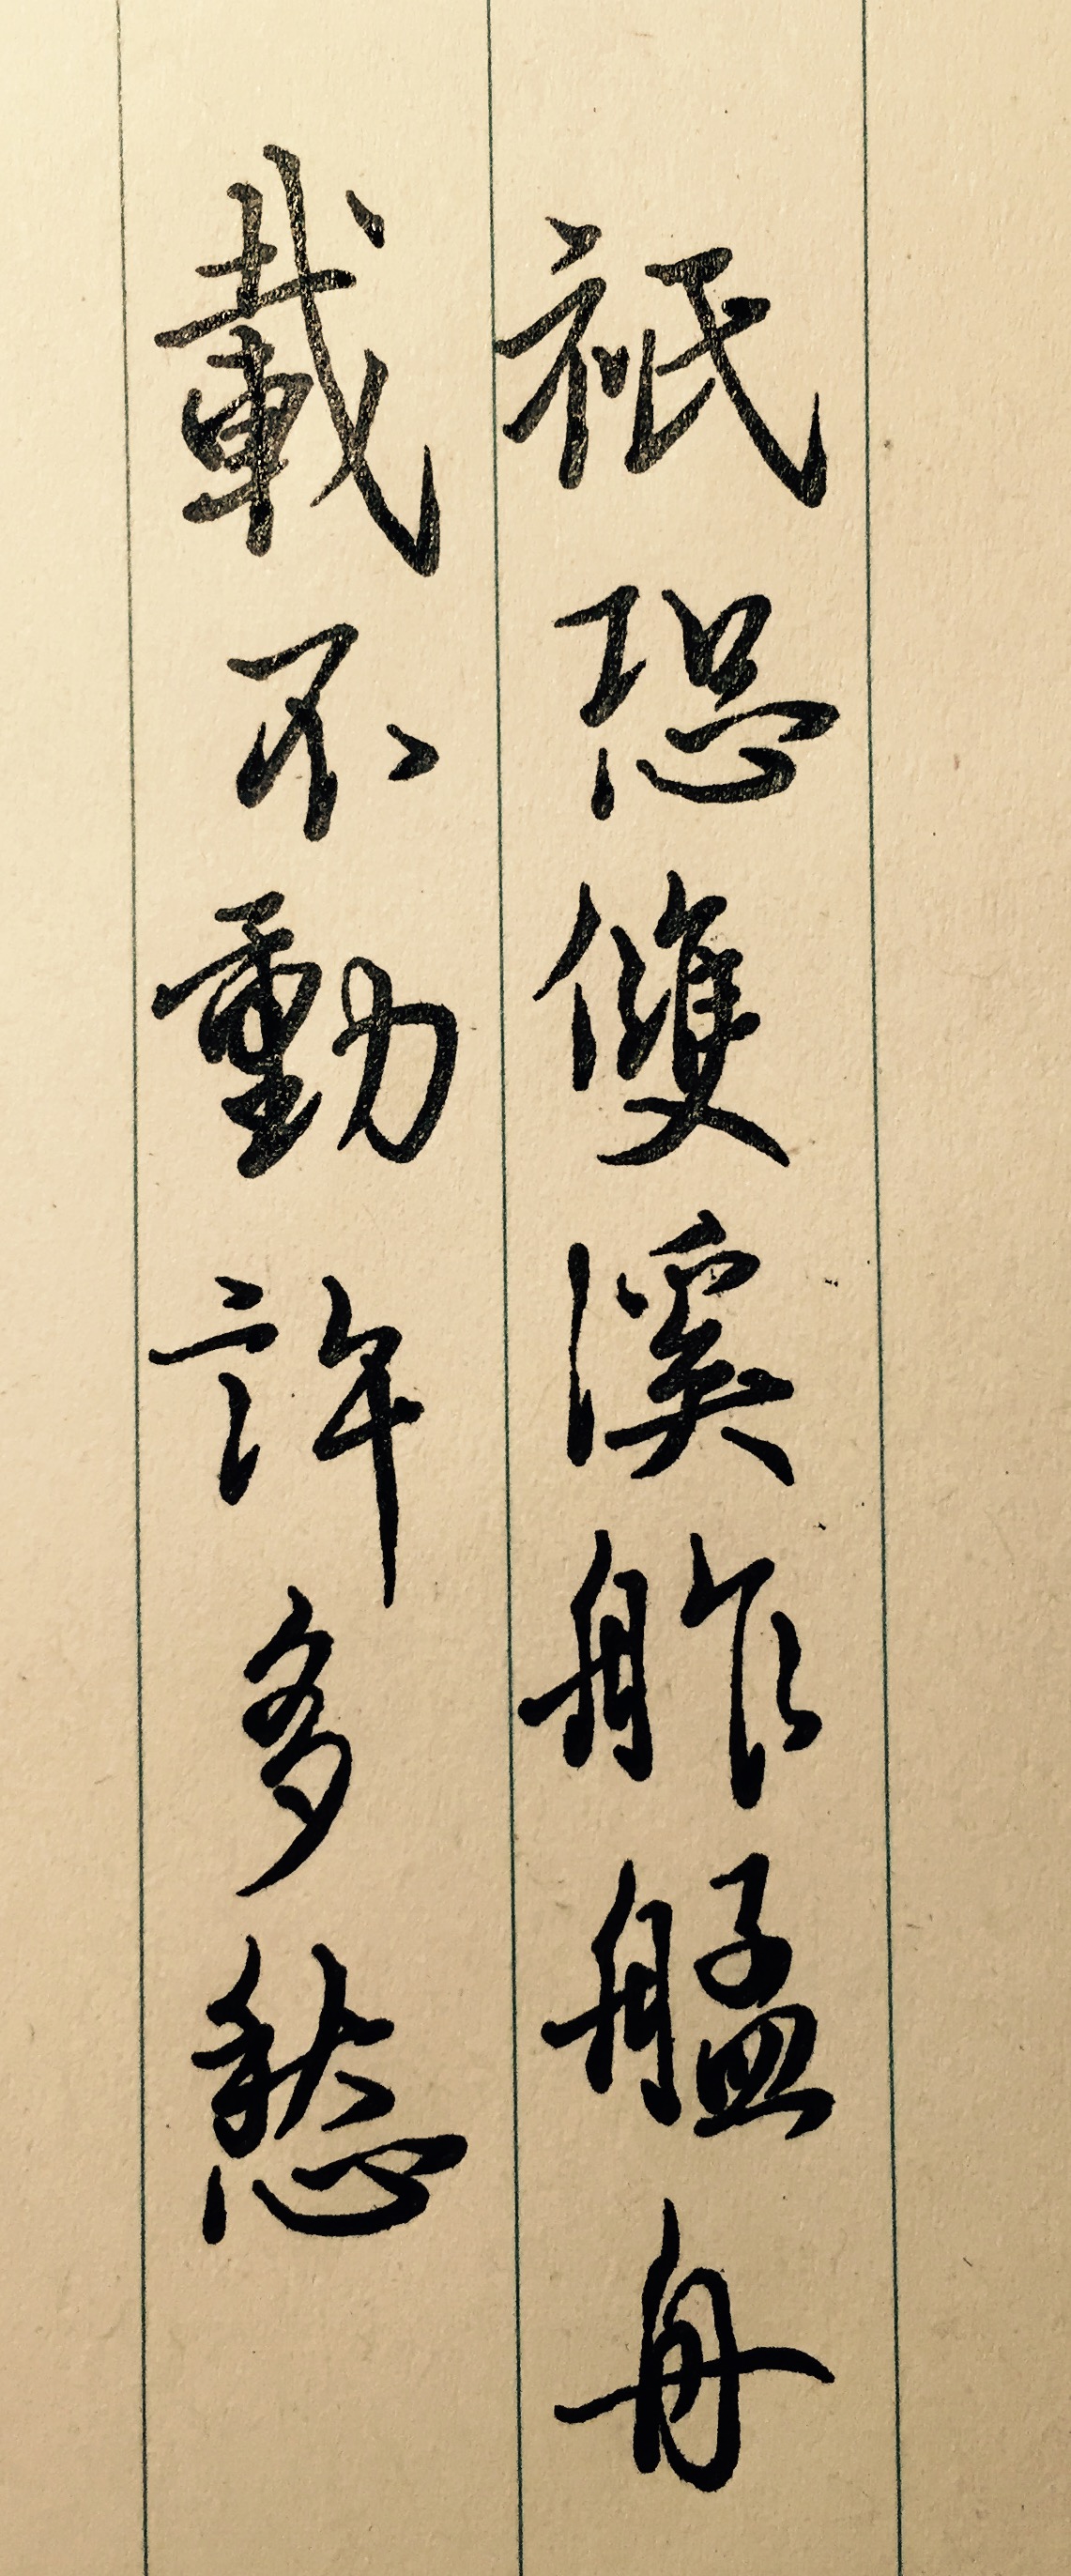 祇恐雙溪舴艋舟
載不動許多愁